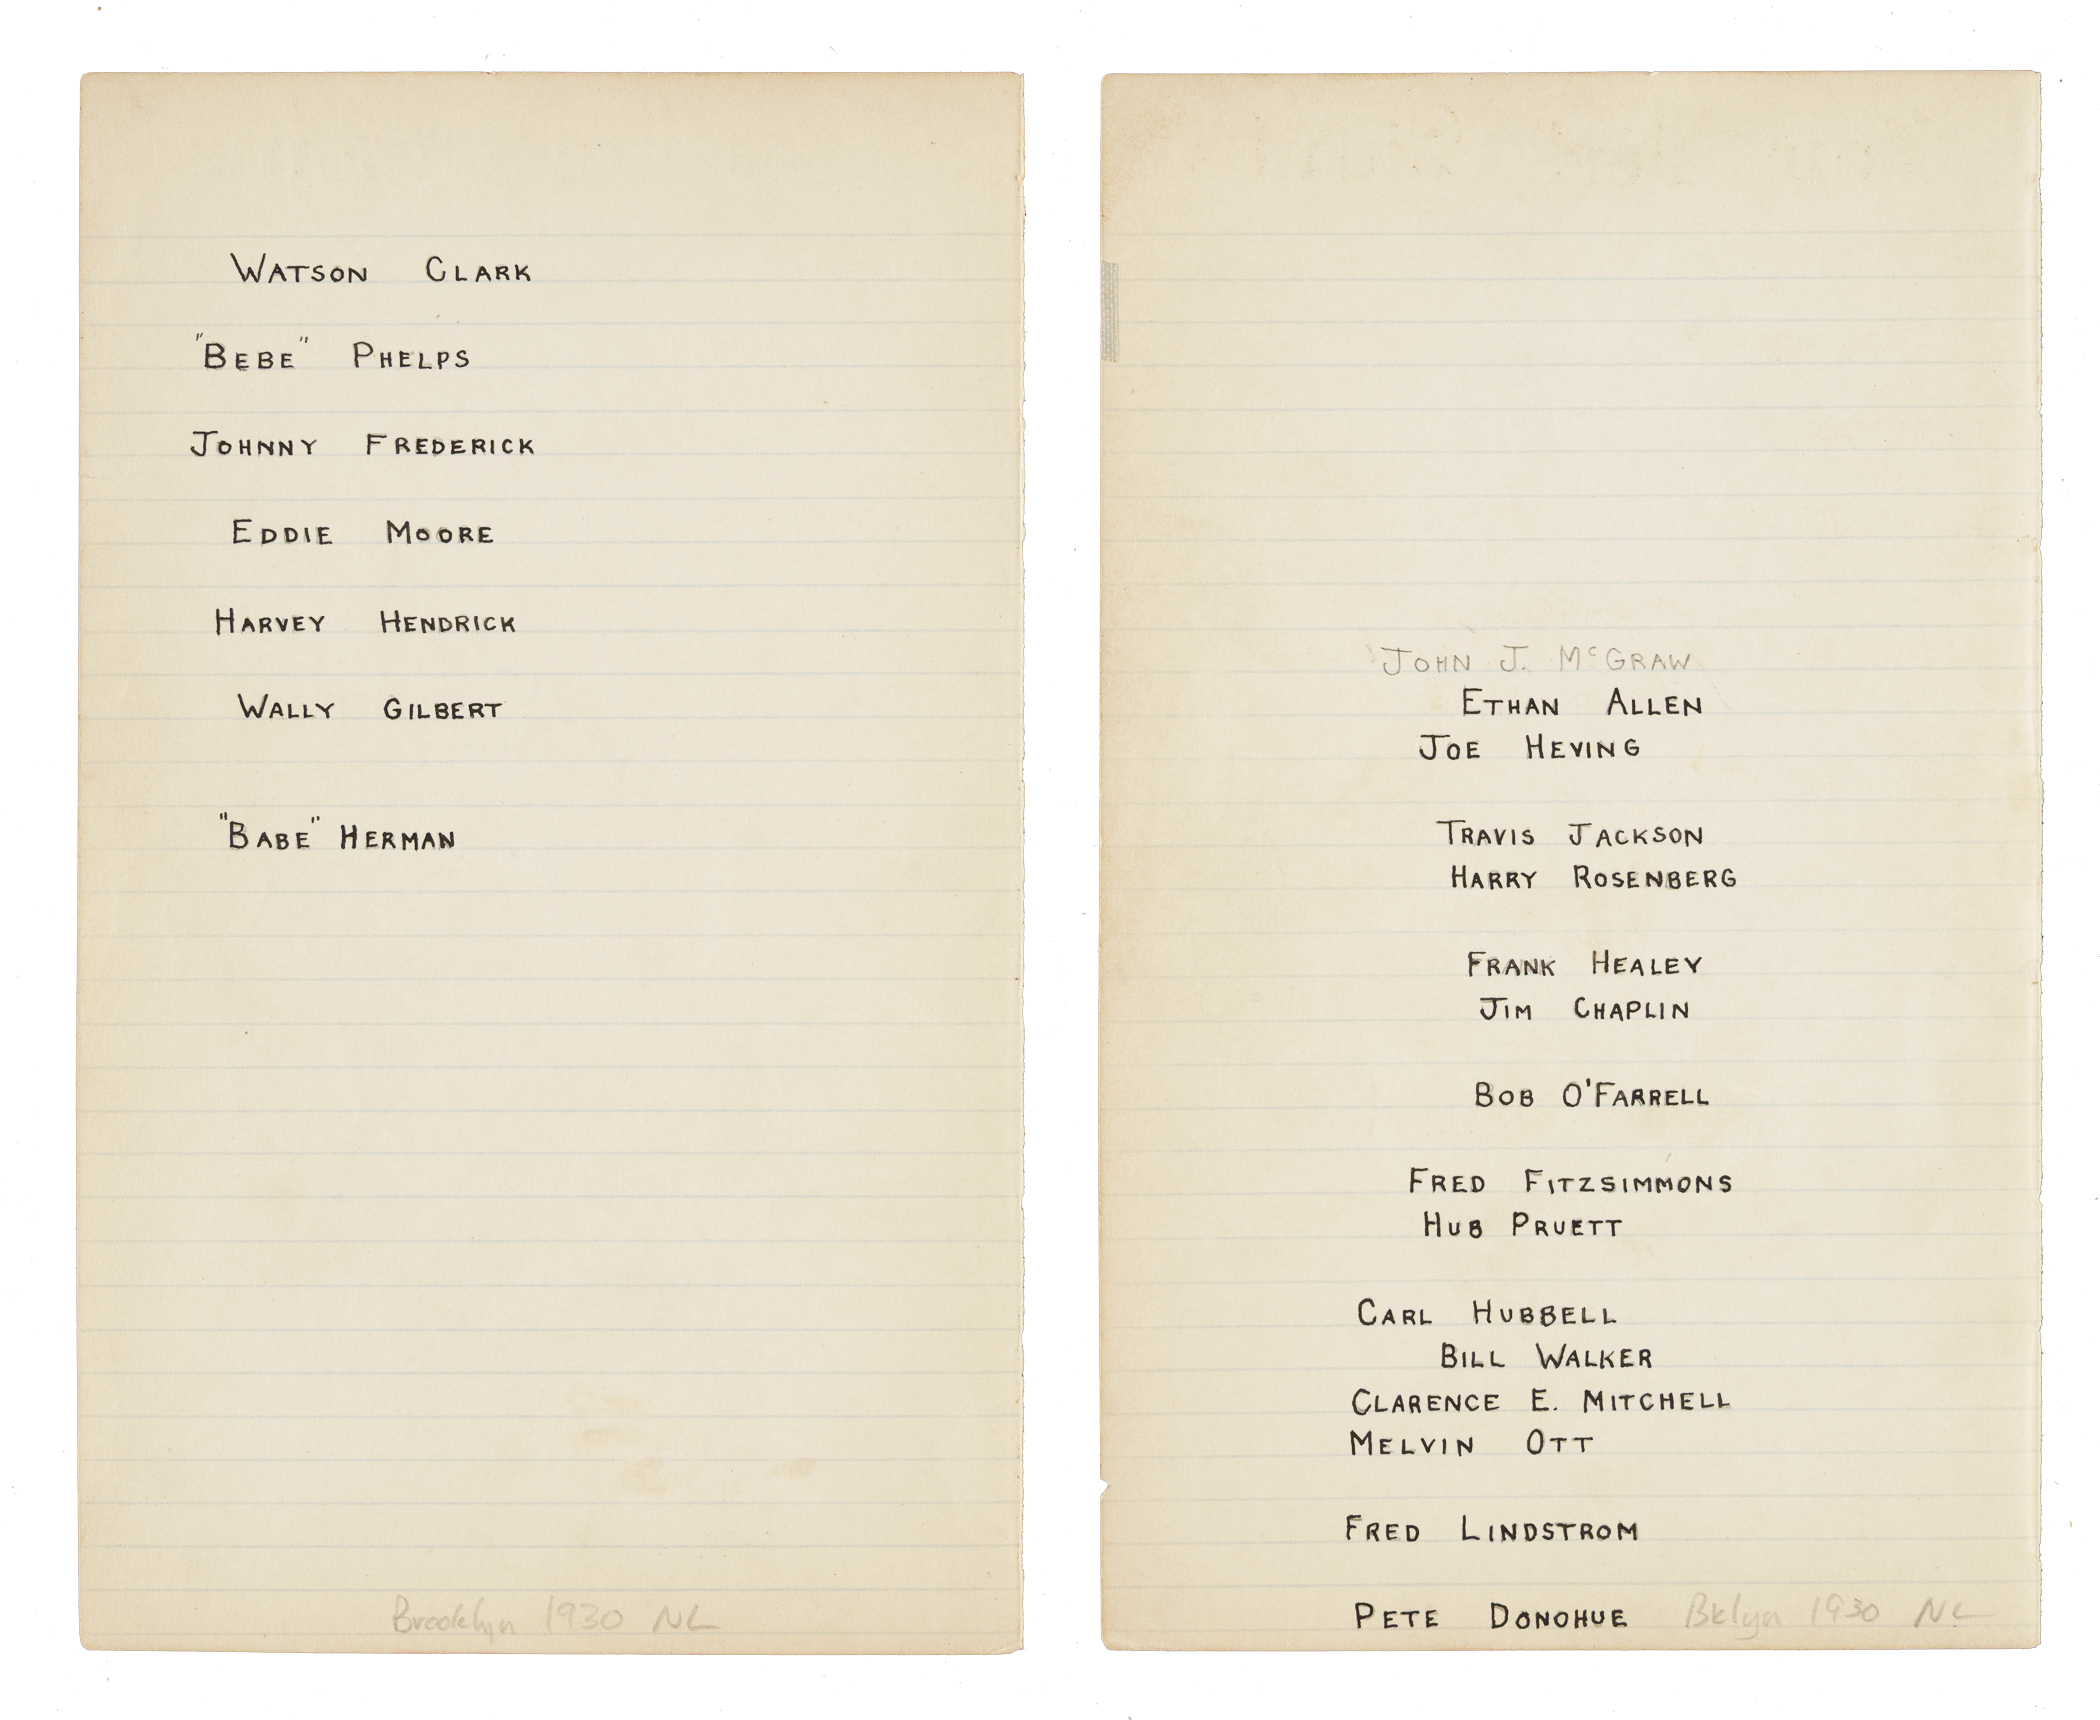 WATSON CLARK
"BEBE" PHELPS
JOHNNY FREDERICK
EDDIE MOORE
HARVEY HENDRICK
WALLY GILBERT
"BABE" HERMAN
Brooklyn 1930 NL
JOHN J. McGRAW
ETHAN ALLEN
JOE HEVING
TRAVIS JACKSON
HARRY ROSENBERG
FRANK HEALEY
JIM CHAPLIN
BOB O'FARRELL
FRED FITZSIMMONS
HUB PRUETT
CARL HUBBELL
BILL WALKER
CLARENCE E. MITCHELL
MELVIN OTT
FRED LINDSTROM
PETE DONOHUE Bklyn 1930 NL